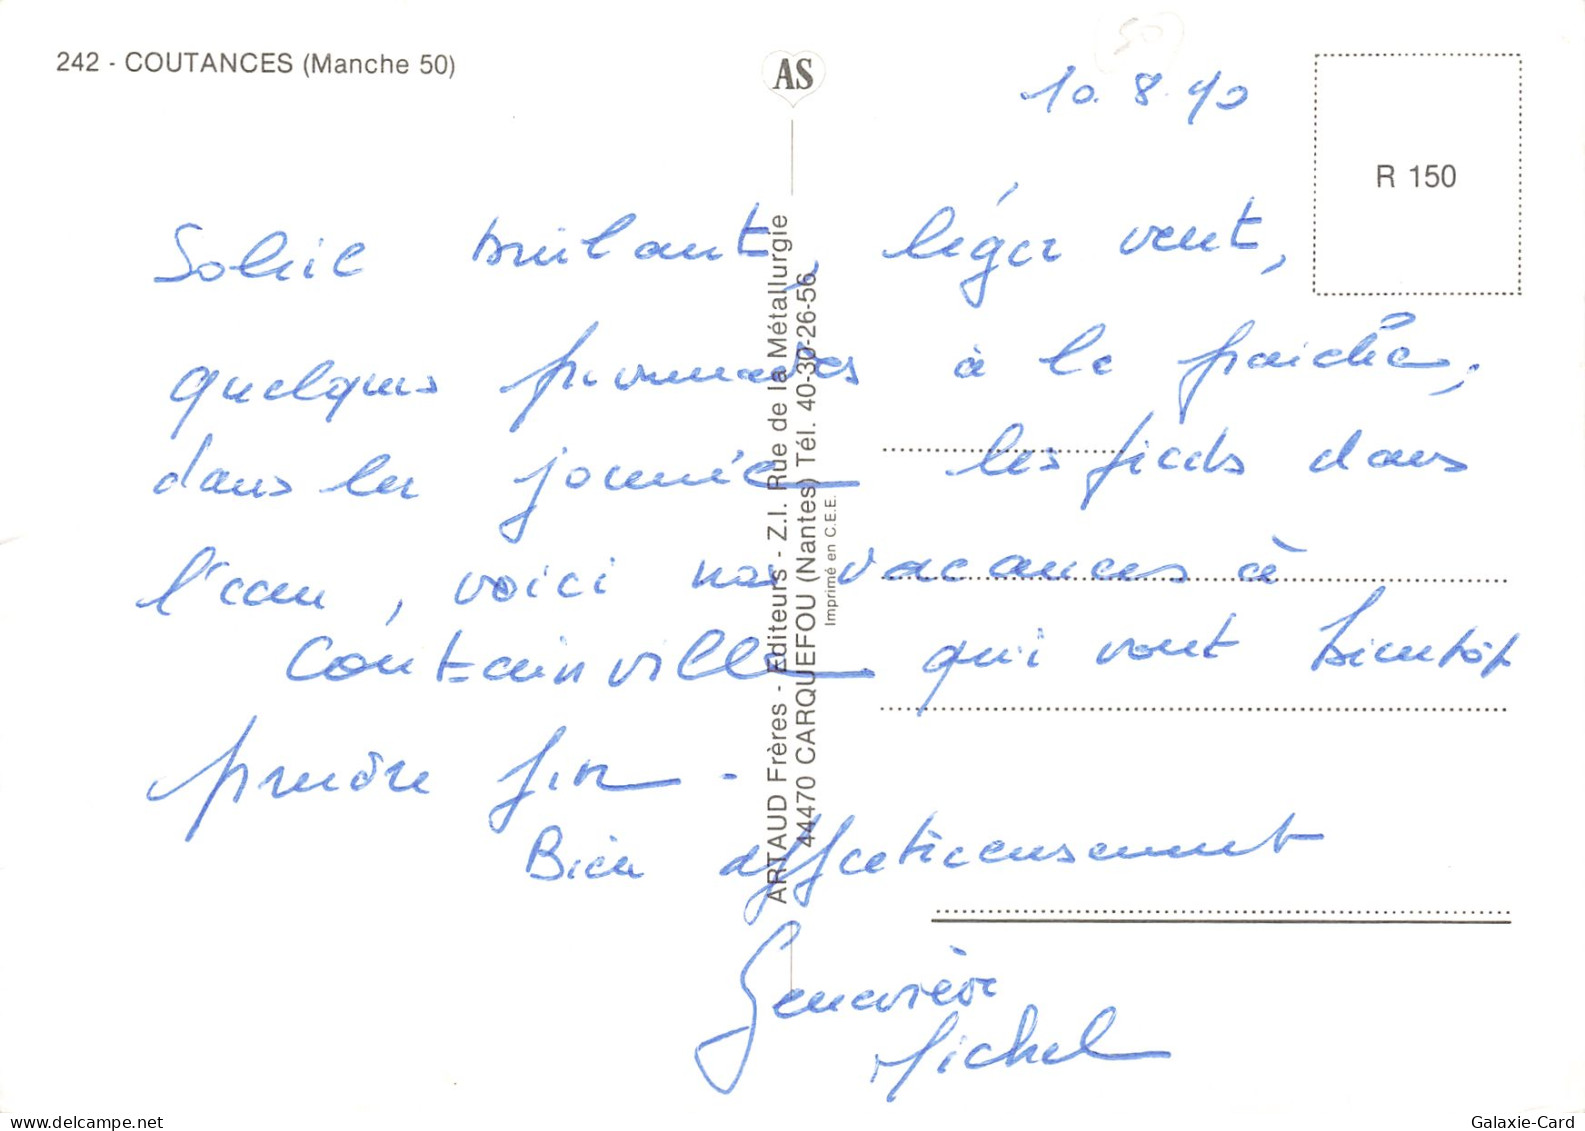 242 - COUTANCES (Manche 50)
AS
50
10.8.90
R 150
Soleil brûlant, léger vent,
quelques promenades à la fraîche,
dans la journée les pieds dans
l'eau, voici nos vacances à
Coutainville qui vont bientôt
prendre fin -
Bien affectueusement
Geneviève
Michel
ARTAUD Frères - Editeurs - Z.I. Rue de la Métallurgie
44470 CARQUEFOU (Nantes) Tél. 40-30-26-56
Imprimé en C.E.E.
delcampe.net
Galaxie-Card